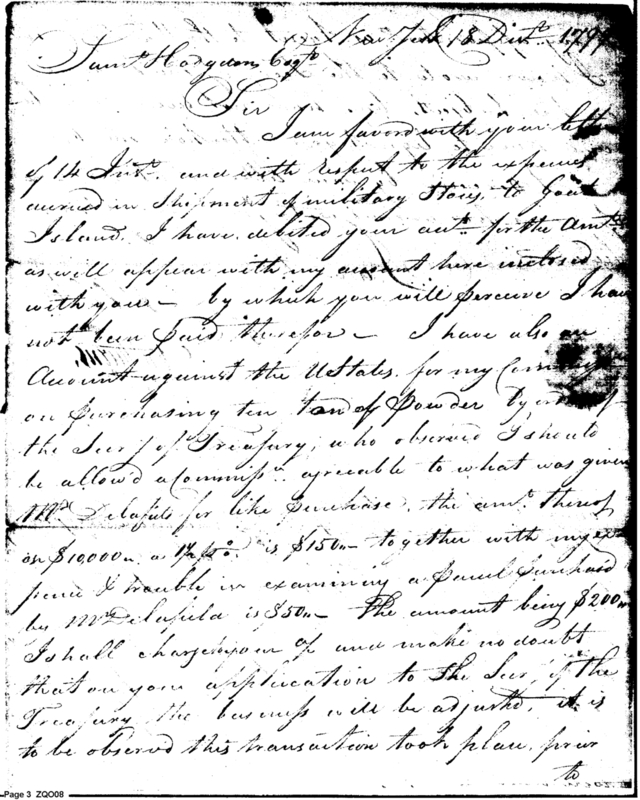 New York 18 Dec.r 179
Sam.l Hodgdon Esq.r
Sir
I am favord with your lett
of 14 Inst. and with respect to the expences
accrued in Shipment of military Stores to Goat
Island. I have debited your acct. for the Amt.
as will appear with my account here inclosed
with you - by which you will perceive I have
not been paid therefor - I have also an
Account against the UStates for my Commiss
on purchasing ten ton of Powder by order of
the Secry of Treasury, who observed I should
be allowd a Commiss.n agreeable to what was given
Mr. Delafield for like purchase, the amt. thereof
on $10,000 a 1½ pCt. is $150 - together with my ex
pence & trouble in examining a parcel purchasd
by Mr. Delafield is $50 - The amount being $200
I shall charge you and make no doubt
that on your application to the Secr.y of the
Treasury the business will be adjusted, it is
to be observed this transaction took place, prior
to
Page 3 ZQO08